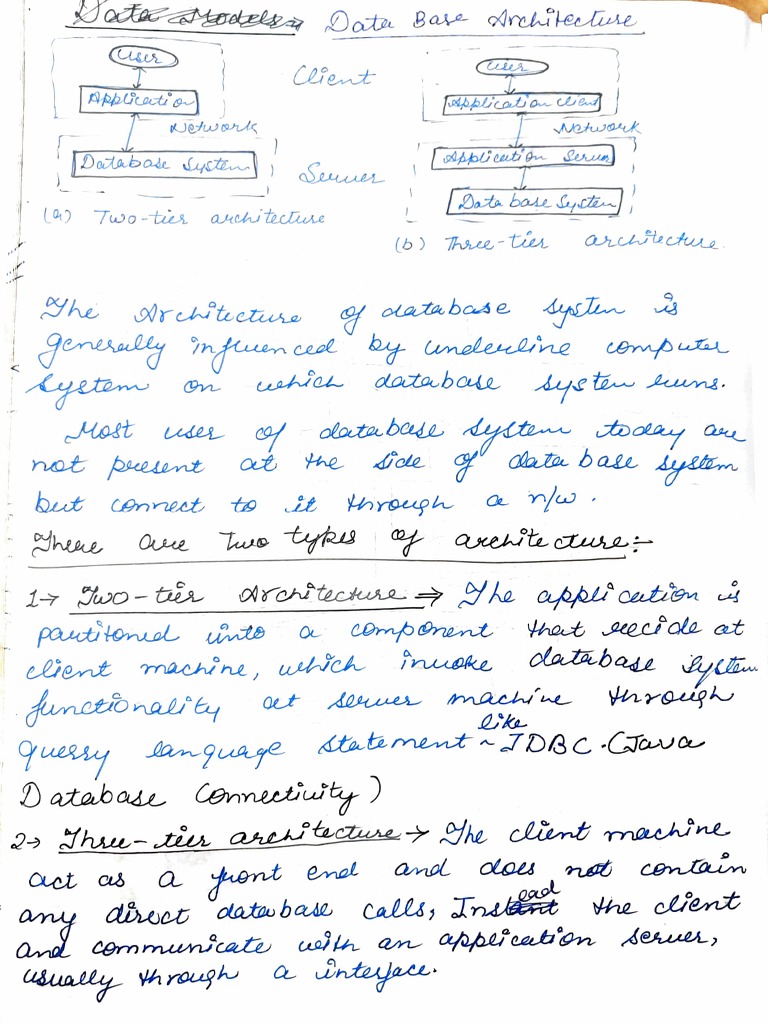 Data Models → Data Base Architecture
User
Application
Network
Database System
(a) Two-tier architecture
Client
Server
User
Application client
Network
Application Server
Database System
(b) Three-tier architecture.
The Architecture of database system is
generally influenced by underline computer
system on which database system runs.
Most user of database system today are
not present at the side of data base system
but connect to it through a n/w.
There are Two types of architecture:-
1→ Two-tier Architecture ⇒ The application is
partitoned into a component that recide at
client machine, which invoke database system
functionality at server machine through
querry language statement ~ like JDBC. (Java
Database Connectivity)
2→ Three-tier architecture → The client machine
act as a front end and does not contain
any direct database calls, Instead the client
and communicate with an application server,
usually through a interface.